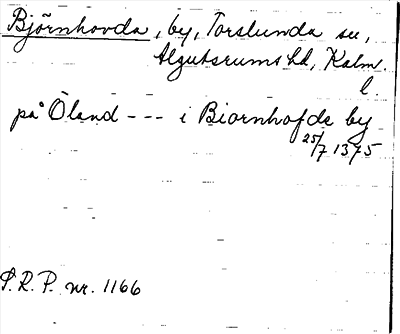 Björnhovda, by, Torslunda sn,
Algutsrums hd, Kalm.
l.
på Öland --- i Biornhofde by
25/7 1375
S.R.P. nr. 1166